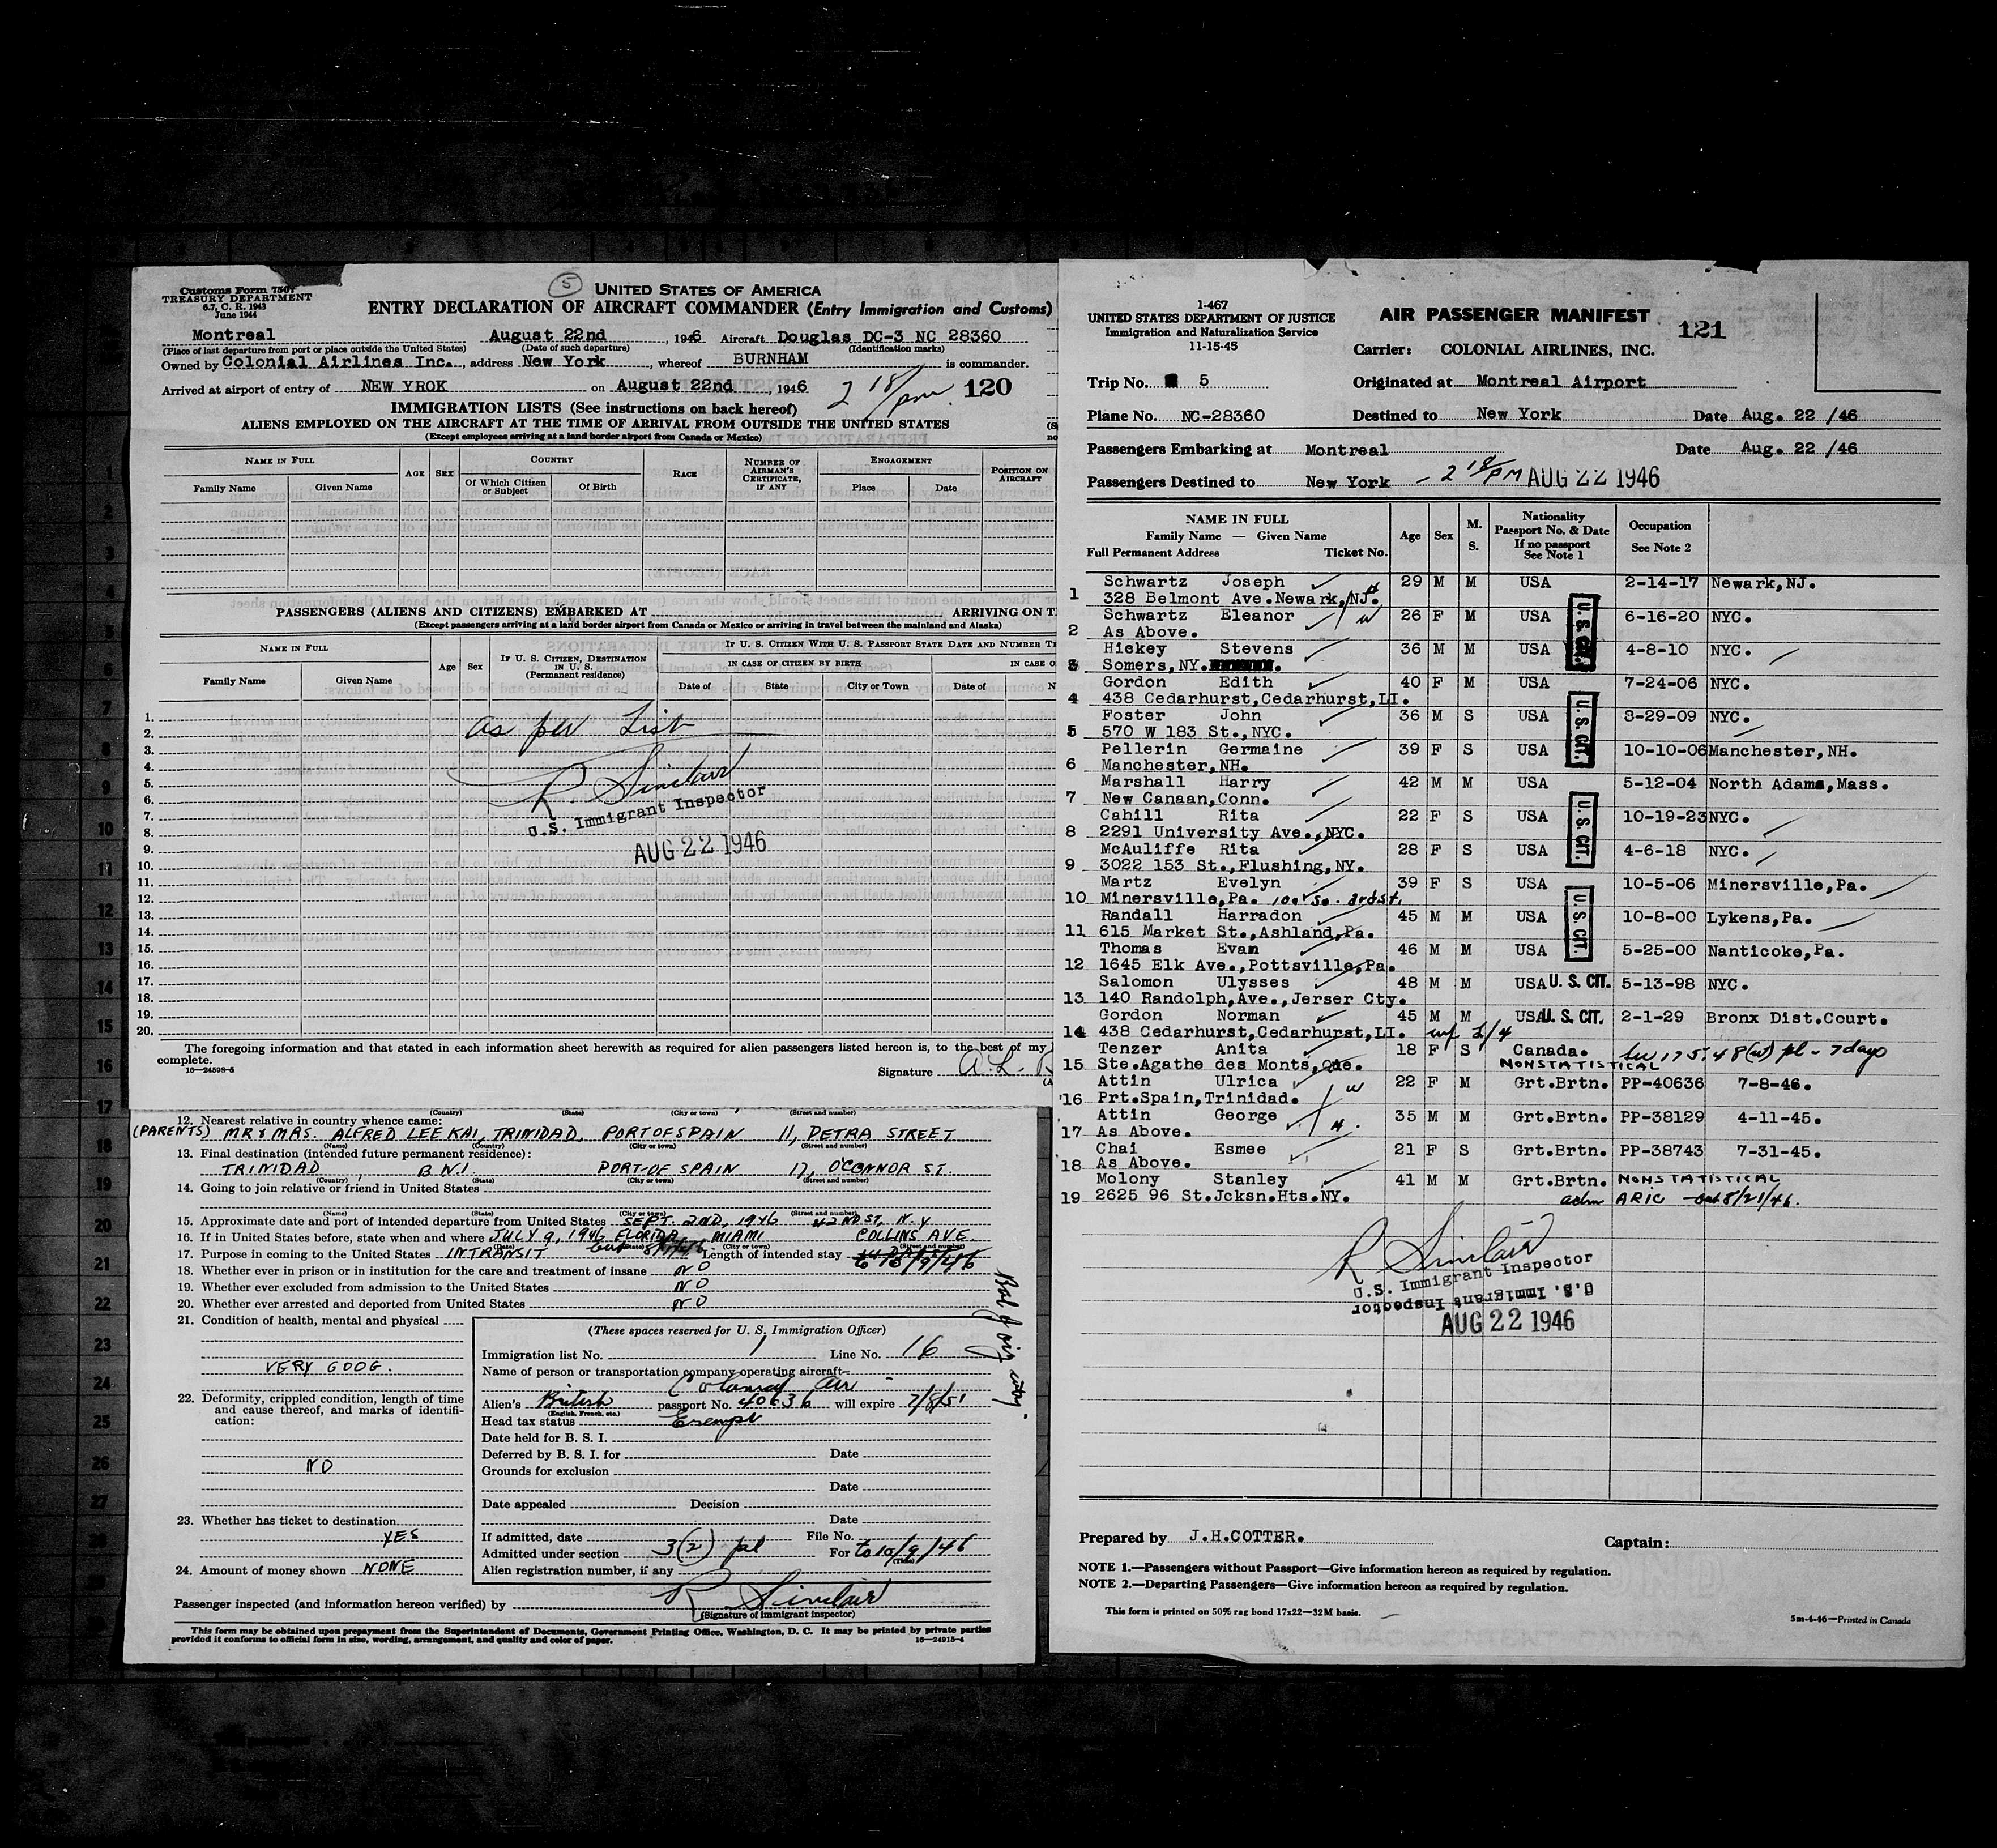 Customs Form 7507
TREASURY DEPARTMENT
6.7, C. R. 1943
June 1944
5
UNITED STATES OF AMERICA
ENTRY DECLARATION OF AIRCRAFT COMMANDER (Entry Immigration and Customs)
Montreal August 22nd, 1946 Aircraft Douglas DC-3 NC 28360
(Place of last departure from port or place outside the United States) (Date of such departure) (Identification marks)
Owned by Colonial Airlines Inc., address New York, whereof BURNHAM is commander.
Arrived at airport of entry of NEW YROK on August 22nd, 1946 2 18/pm 120
IMMIGRATION LISTS (See instructions on back hereof)
ALIENS EMPLOYED ON THE AIRCRAFT AT THE TIME OF ARRIVAL FROM OUTSIDE THE UNITED STATES
(Except employees arriving at a land border airport from Canada or Mexico)
NAME IN FULL AGE SEX COUNTRY RACE NUMBER OF AIRMAN'S CERTIFICATE, IF ANY ENGAGEMENT POSITION ON AIRCRAFT
Family Name Given Name Of Which Citizen or Subject Of Birth Place Date
PASSENGERS (ALIENS AND CITIZENS) EMBARKED AT ARRIVING ON T
(Except passengers arriving at a land border airport from Canada or Mexico or arriving in travel between the mainland and Alaska)
NAME IN FULL Age Sex IF U. S. CITIZEN, DESTINATION IN U. S. (Permanent residence) IF U. S. CITIZEN WITH U. S. PASSPORT STATE DATE AND NUMBER T
IN CASE OF CITIZEN BY BIRTH IN CASE O
Family Name Given Name Date of State City or Town Date of N
1.
2. as per List
3.
4.
5. R. Sinclair
6.
7. U.S. Immigrant Inspector
8.
9. AUG 22 1946
10.
11.
12.
13.
14.
15.
16.
17.
18.
19.
20.
The foregoing information and that stated in each information sheet herewith as required for alien passengers listed hereon is, to the best of my
complete.
16—24598-5
Signature A.L. B
12. Nearest relative in country whence came:
(Country) (State) (City or town) (Street and number)
(PARENTS) MR & MRS. ALFRED LEE KAI, TRINIDAD, PORT OF SPAIN 11, PETRA STREET
(Name) (Country) (City or town) (Street and number)
13. Final destination (intended future permanent residence):
TRINIDAD B.W.I. PORT-OF SPAIN 17, O'CONNOR ST.
(Country) (State) (City or town) (Street and number)
14. Going to join relative or friend in United States
(Name) (City or town) (Street and number)
15. Approximate date and port of intended departure from United States SEPT. 2ND, 1946 42ND ST, N.Y
16. If in United States before, state when and where JULY 9, 1946 FLORIDA, MIAMI COLLINS AVE.
(Date) (State) (City or town) (Street and number)
17. Purpose in coming to the United States INTRANSIT Length of intended stay to 10/9/46
18. Whether ever in prison or in institution for the care and treatment of insane NO
19. Whether ever excluded from admission to the United States NO
20. Whether ever arrested and deported from United States NO
21. Condition of health, mental and physical
VERY GOOG.
22. Deformity, crippled condition, length of time and cause thereof, and marks of identification:
NO
23. Whether has ticket to destination
YES
24. Amount of money shown NONE
(These spaces reserved for U. S. Immigration Officer)
Immigration list No. 1 Line No. 16
Name of person or transportation company operating aircraft—
Colonial Air
Alien's British passport No. 40636 will expire 7/8/51
(English, French, etc.)
Head tax status Exempt
Date held for B. S. I.
Deferred by B. S. I. for Date
Grounds for exclusion
Date
Date appealed Decision
Date
If admitted, date File No.
Admitted under section 3(2) pal For to 10/9/46
(Time)
Alien registration number, if any
Passenger inspected (and information hereon verified) by R Sinclair
(Signature of immigrant inspector)
This form may be obtained upon prepayment from the Superintendent of Documents, Government Printing Office, Washington, D. C. It may be printed by private parties
provided it conforms to official form in size, wording, arrangement, and quality and color of paper. 16—24915-4
I-467
UNITED STATES DEPARTMENT OF JUSTICE
Immigration and Naturalization Service
11-15-45
AIR PASSENGER MANIFEST 121
Carrier: COLONIAL AIRLINES, INC.
Trip No. 5 Originated at Montreal Airport
Plane No. NC-28360 Destined to New York Date Aug. 22 /46
Passengers Embarking at Montreal Date Aug. 22 /46
Passengers Destined to New York - 2 18/PM AUG 22 1946
NAME IN FULL Age Sex M. S. Nationality Passport No. & Date If no passport See Note 1 Occupation See Note 2
Family Name — Given Name
Full Permanent Address Ticket No.
Schwartz Joseph 29 M M USA 2-14-17 Newark,NJ.
1 328 Belmont Ave.Newark,NJ.
Schwartz Eleanor w 26 F M USA U.S. CIT. 6-16-20 NYC.
2 As Above.
Hickey Stevens 36 M M USA 4-8-10 NYC.
3 Somers,NY.
Gordon Edith 40 F M USA 7-24-06 NYC.
4 438 Cedarhurst,Cedarhurst,LI.
Foster John 36 M S USA U.S. CIT. 8-29-09 NYC.
5 570 W 183 St.,NYC.
Pellerin Germaine 39 F S USA 10-10-06 Manchester,NH.
6 Manchester,NH.
Marshall Harry 42 M M USA 5-12-04 North Adams,Mass.
7 New Canaan,Conn.
Cahill Rita 22 F S USA U.S. CIT. 10-19-23 NYC.
8 2291 University Ave.,NYC.
McAuliffe Rita 28 F S USA 4-6-18 NYC.
9 3022 153 St.,Flushing,NY.
Martz Evelyn 39 F S USA 10-5-06 Minersville,Pa.
10 Minersville,Pa. 100 So. 3rd st.
Randall Harradon 45 M M USA U.S. CIT. 10-8-00 Lykens,Pa.
11 615 Market St.,Ashland,Pa.
Thomas Evan 46 M M USA 5-25-00 Nanticoke,Pa.
12 1645 Elk Ave.,Pottsville,Pa.
Salomon Ulysses 48 M M USA U. S. CIT. 5-13-98 NYC.
13 140 Randolph,Ave.,Jerser Cty.
Gordon Norman 45 M M USA U. S. CIT. 2-1-29 Bronx Dist.Court.
14 438 Cedarhurst,Cedarhurst,LI.
Tenzer Anita 18 F S Canada. 175.48(w) pl - 7 days
15 Ste.Agathe des Monts,Que. NONSTATISTICAL
Attin Ulrica w 22 F M Grt.Brtn. PP-40636 7-8-46.
16 Prt.Spain,Trinidad.
Attin George H. 35 M M Grt.Brtn. PP-38129 4-11-45.
17 As Above.
Chai Esmee 21 F S Grt.Brtn. PP-38743 7-31-45.
18 As Above.
Molony Stanley 41 M M Grt.Brtn. NONSTATISTICAL
19 2625 96 St.Jcksn.Hts.NY. adm ARIC - out 8/21/46.
R Sinclair
U.S. Immigrant Inspector
U.S. Immigrant Inspector
AUG 22 1946
Prepared by J.H.COTTER. Captain:
NOTE 1.—Passengers without Passport—Give information hereon as required by regulation.
NOTE 2.—Departing Passengers—Give information hereon as required by regulation.
This form is printed on 50% rag bond 17x22—32M basis.
5m-4-46—Printed in Canada